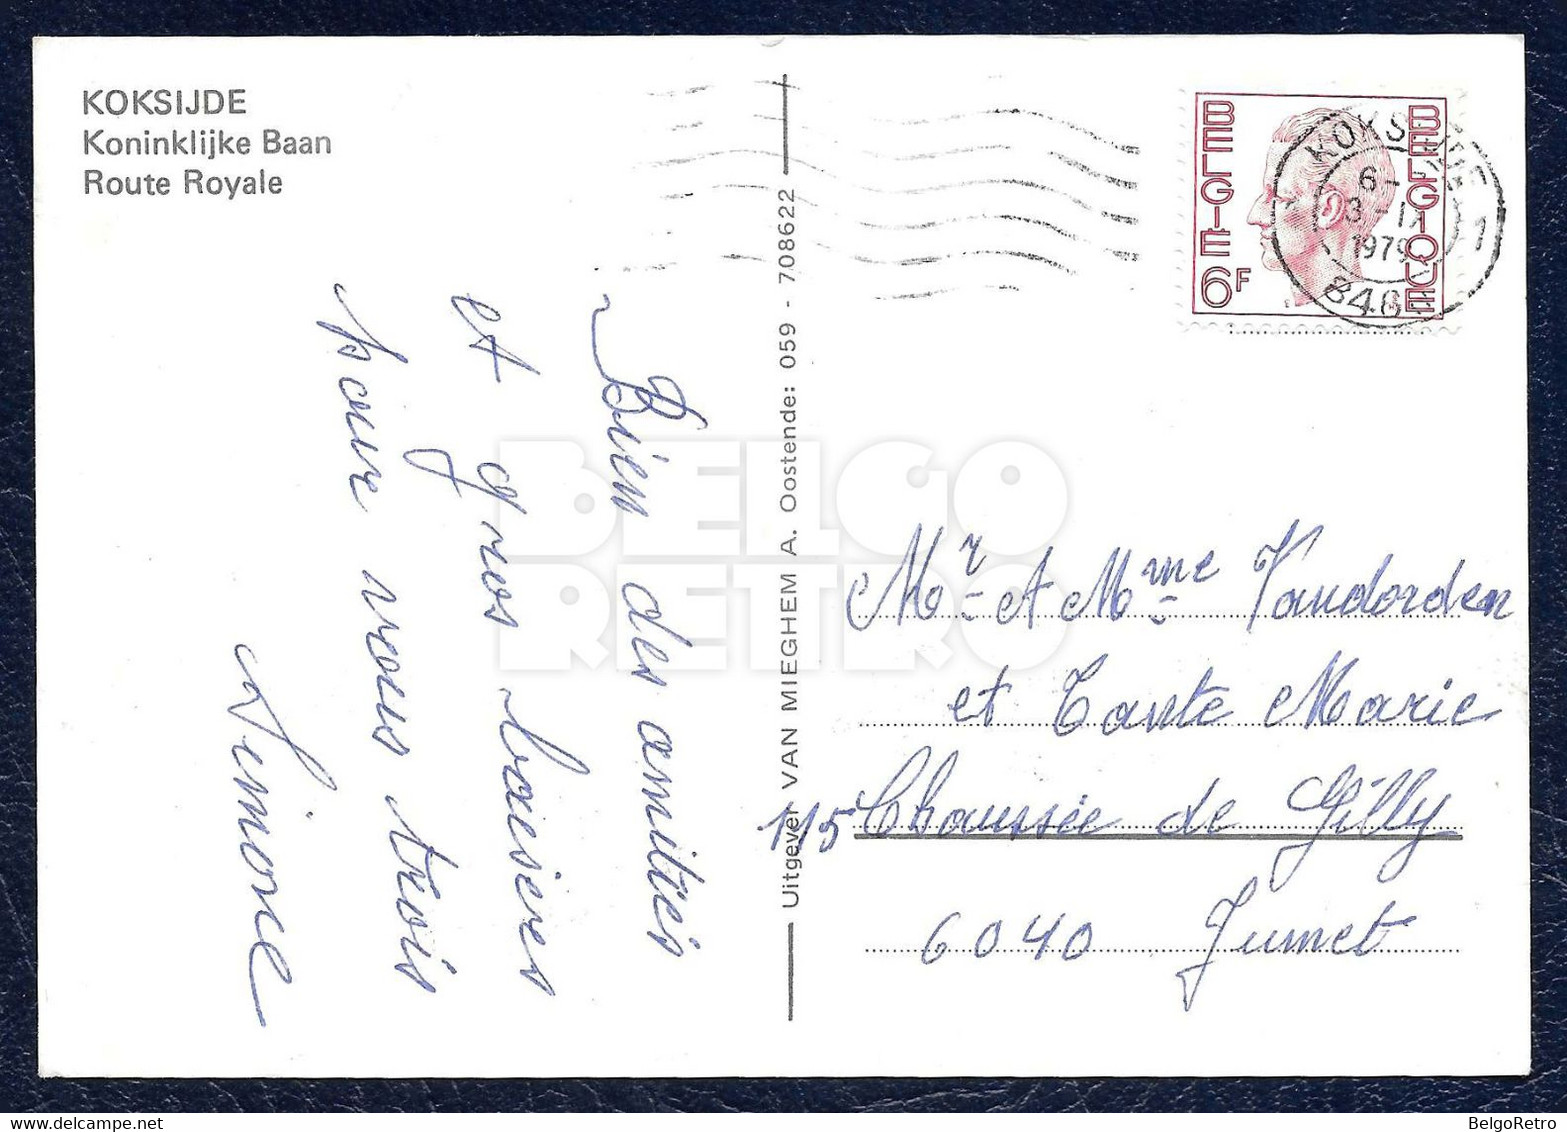 KOKSIJDE
Koninklijke Baan
Route Royale
Bien des amitiés
et gros baisers
pour vous trois
Simone
Uitgever VAN MIEGHEM A. Oostende: 059 - 708622
BELGIE
BELGIQUE
6F
KOKSIJDE 1
6-
3-IX
1979
BELGO
RETRO
Mr - et Mme Vandorden
et Tante Marie
115 Chaussée de Gilly
6040 Jumet
BelgoRetro